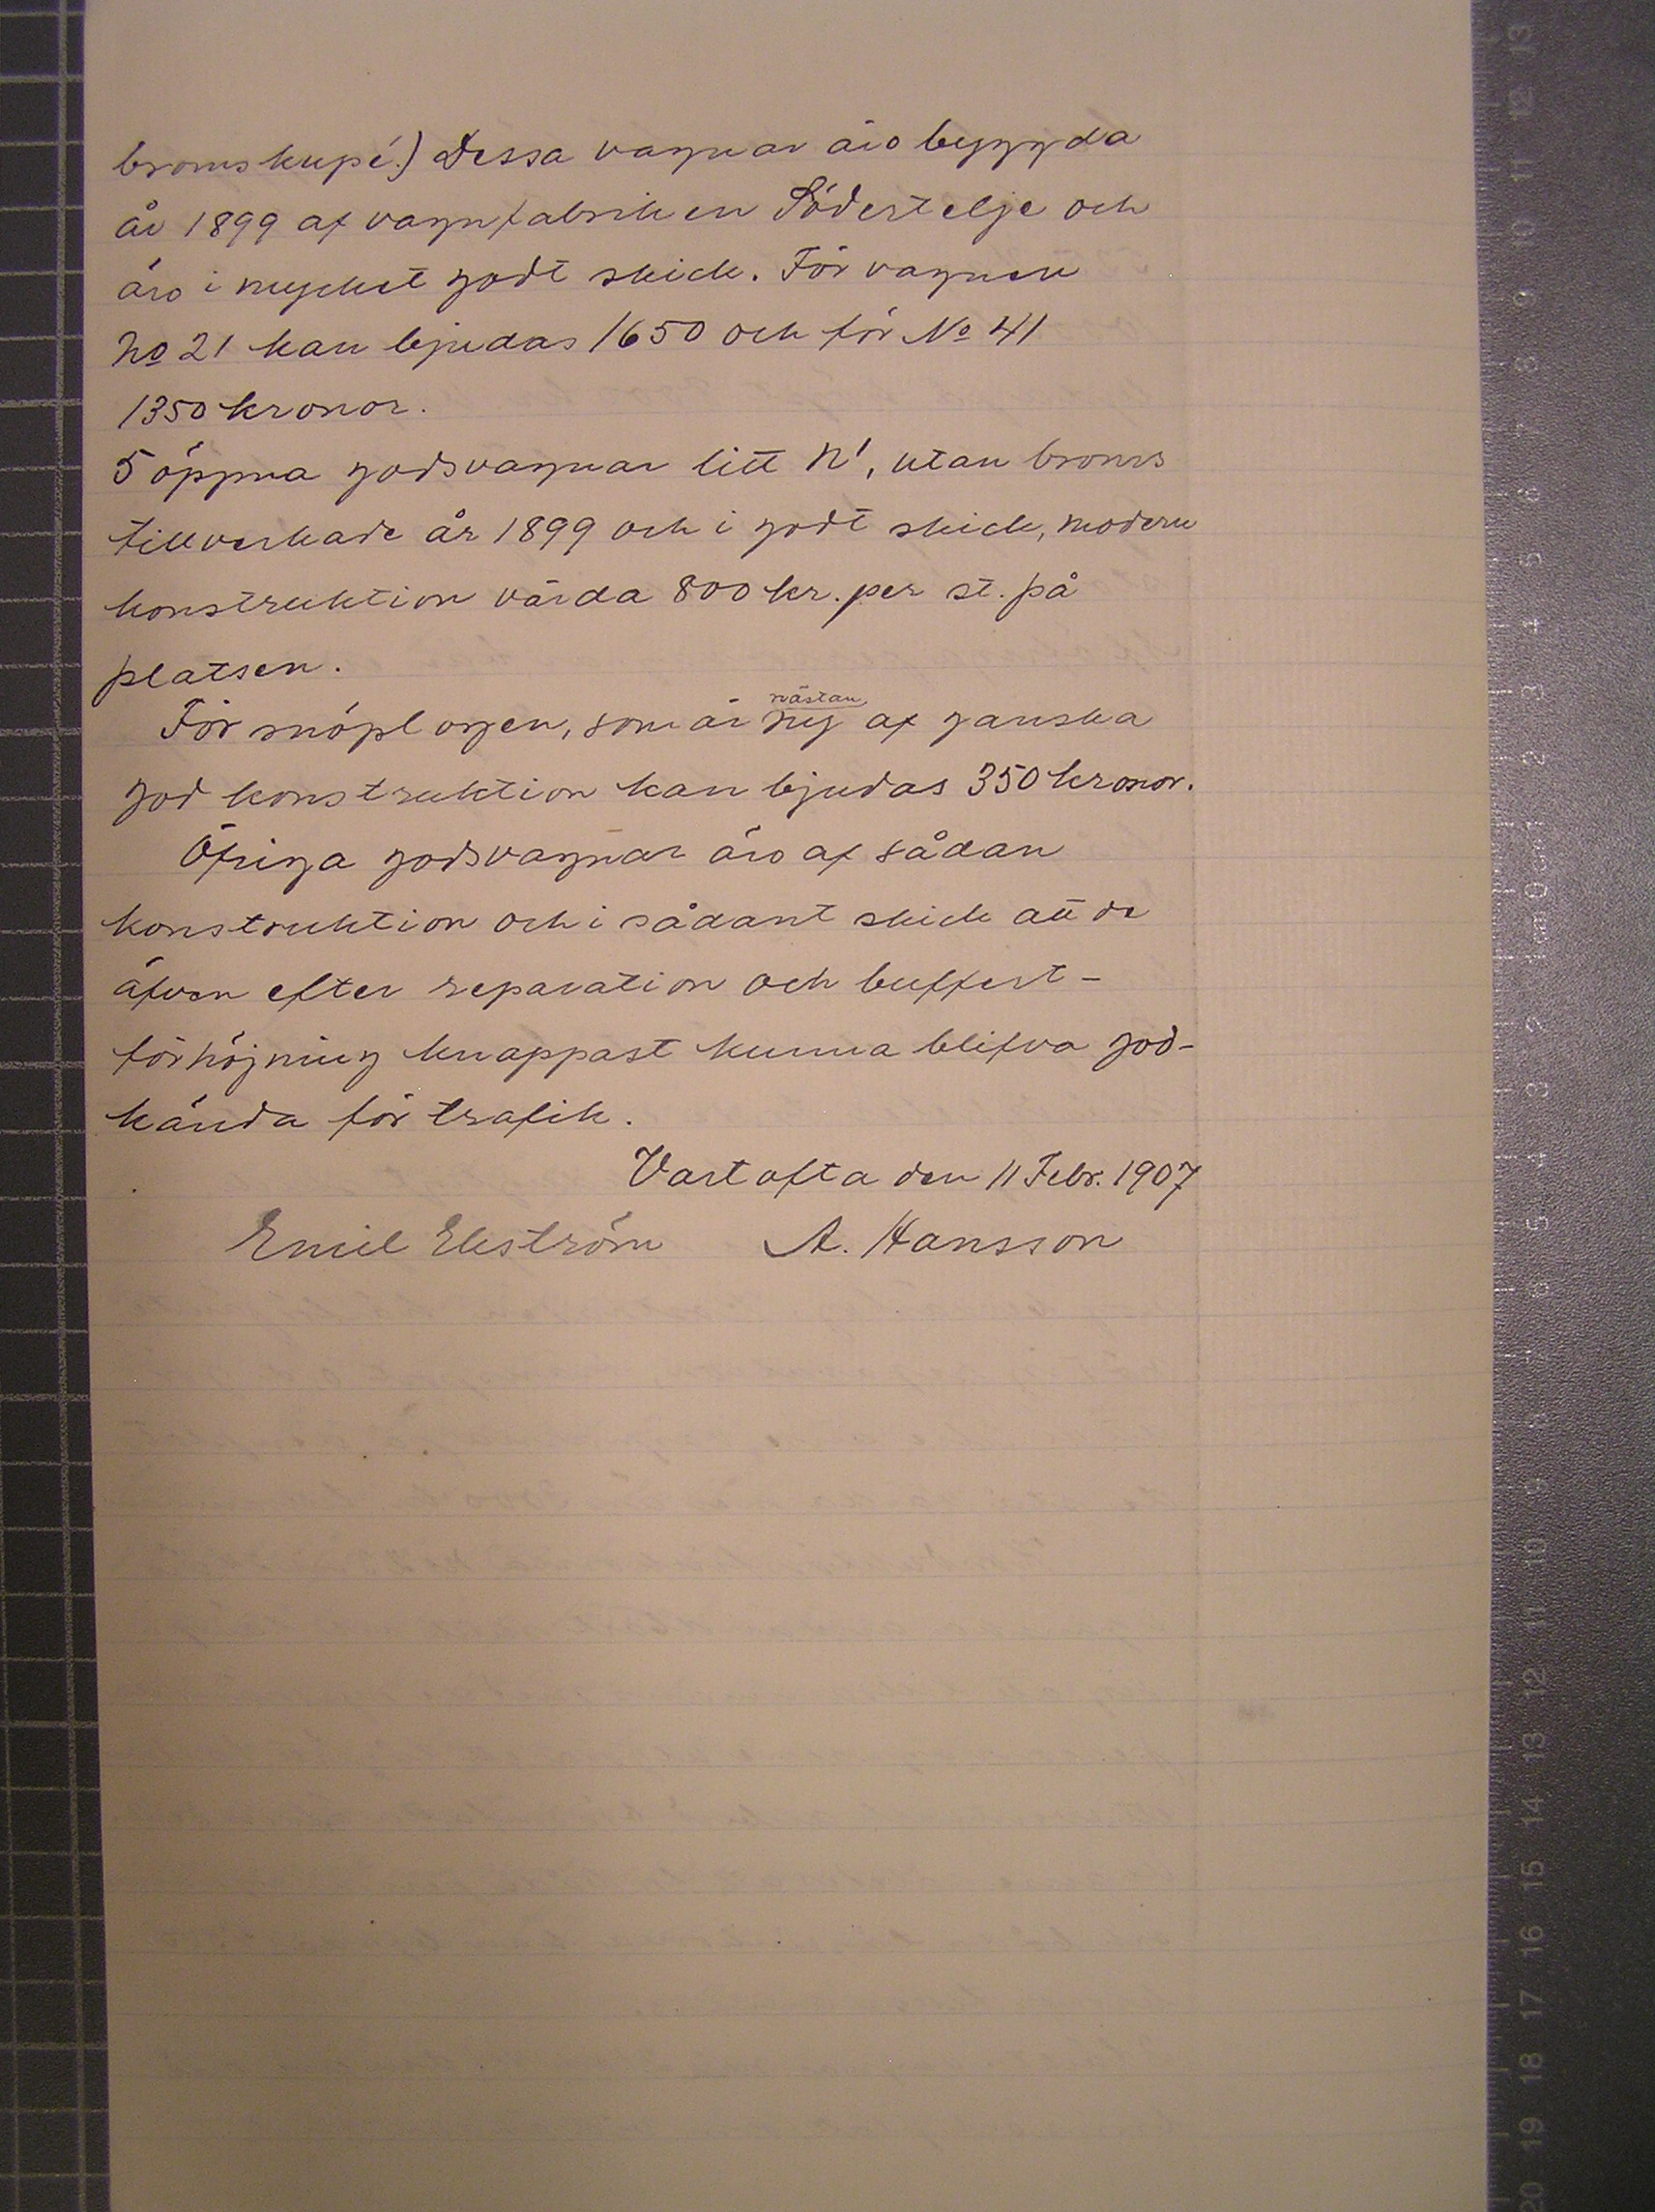 bromskupé.) Dessa vagnar äro byggda
år 1899 af vagnfabriken Södertelje och
äro i mycket godt skick. För vagnen
No 21 kan bjudas 1650 och för No 41
1350 kronor.
5 öppna godsvagnar litt N', utan broms
tillverkade år 1899 och i godt skick, modern
konstruktion värda 800 kr. per st. på
platsen.
nästan
För snöplogen, som är ny af ganska
god konstruktion kan bjudas 350 kronor.
Öfriga godsvagnar äro af sådan
konstruktion och i sådant skick att de
äfven efter reparation och buffert-
förhöjning knappast kunna blifva god-
kända för trafik.
Vartofta den 11 Febr. 1907
Emil Ekström A. Hansson
13
12
11
10
9
8
7
6
5
4
3
2
1
0
1
2
3
4
5
6
7
8
9
10
11
12
13
14
15
16
17
18
19
20